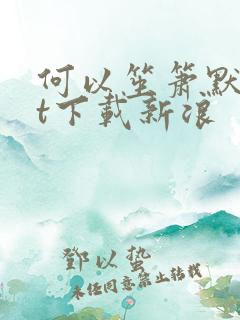 何以笙箫默
t下载新浪
邓以蛰
未经同意禁止转载